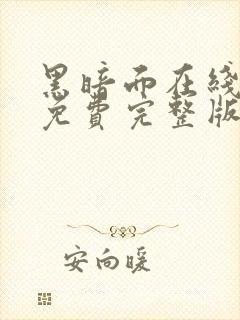 黑暗而在线
免费完整版
安向暖